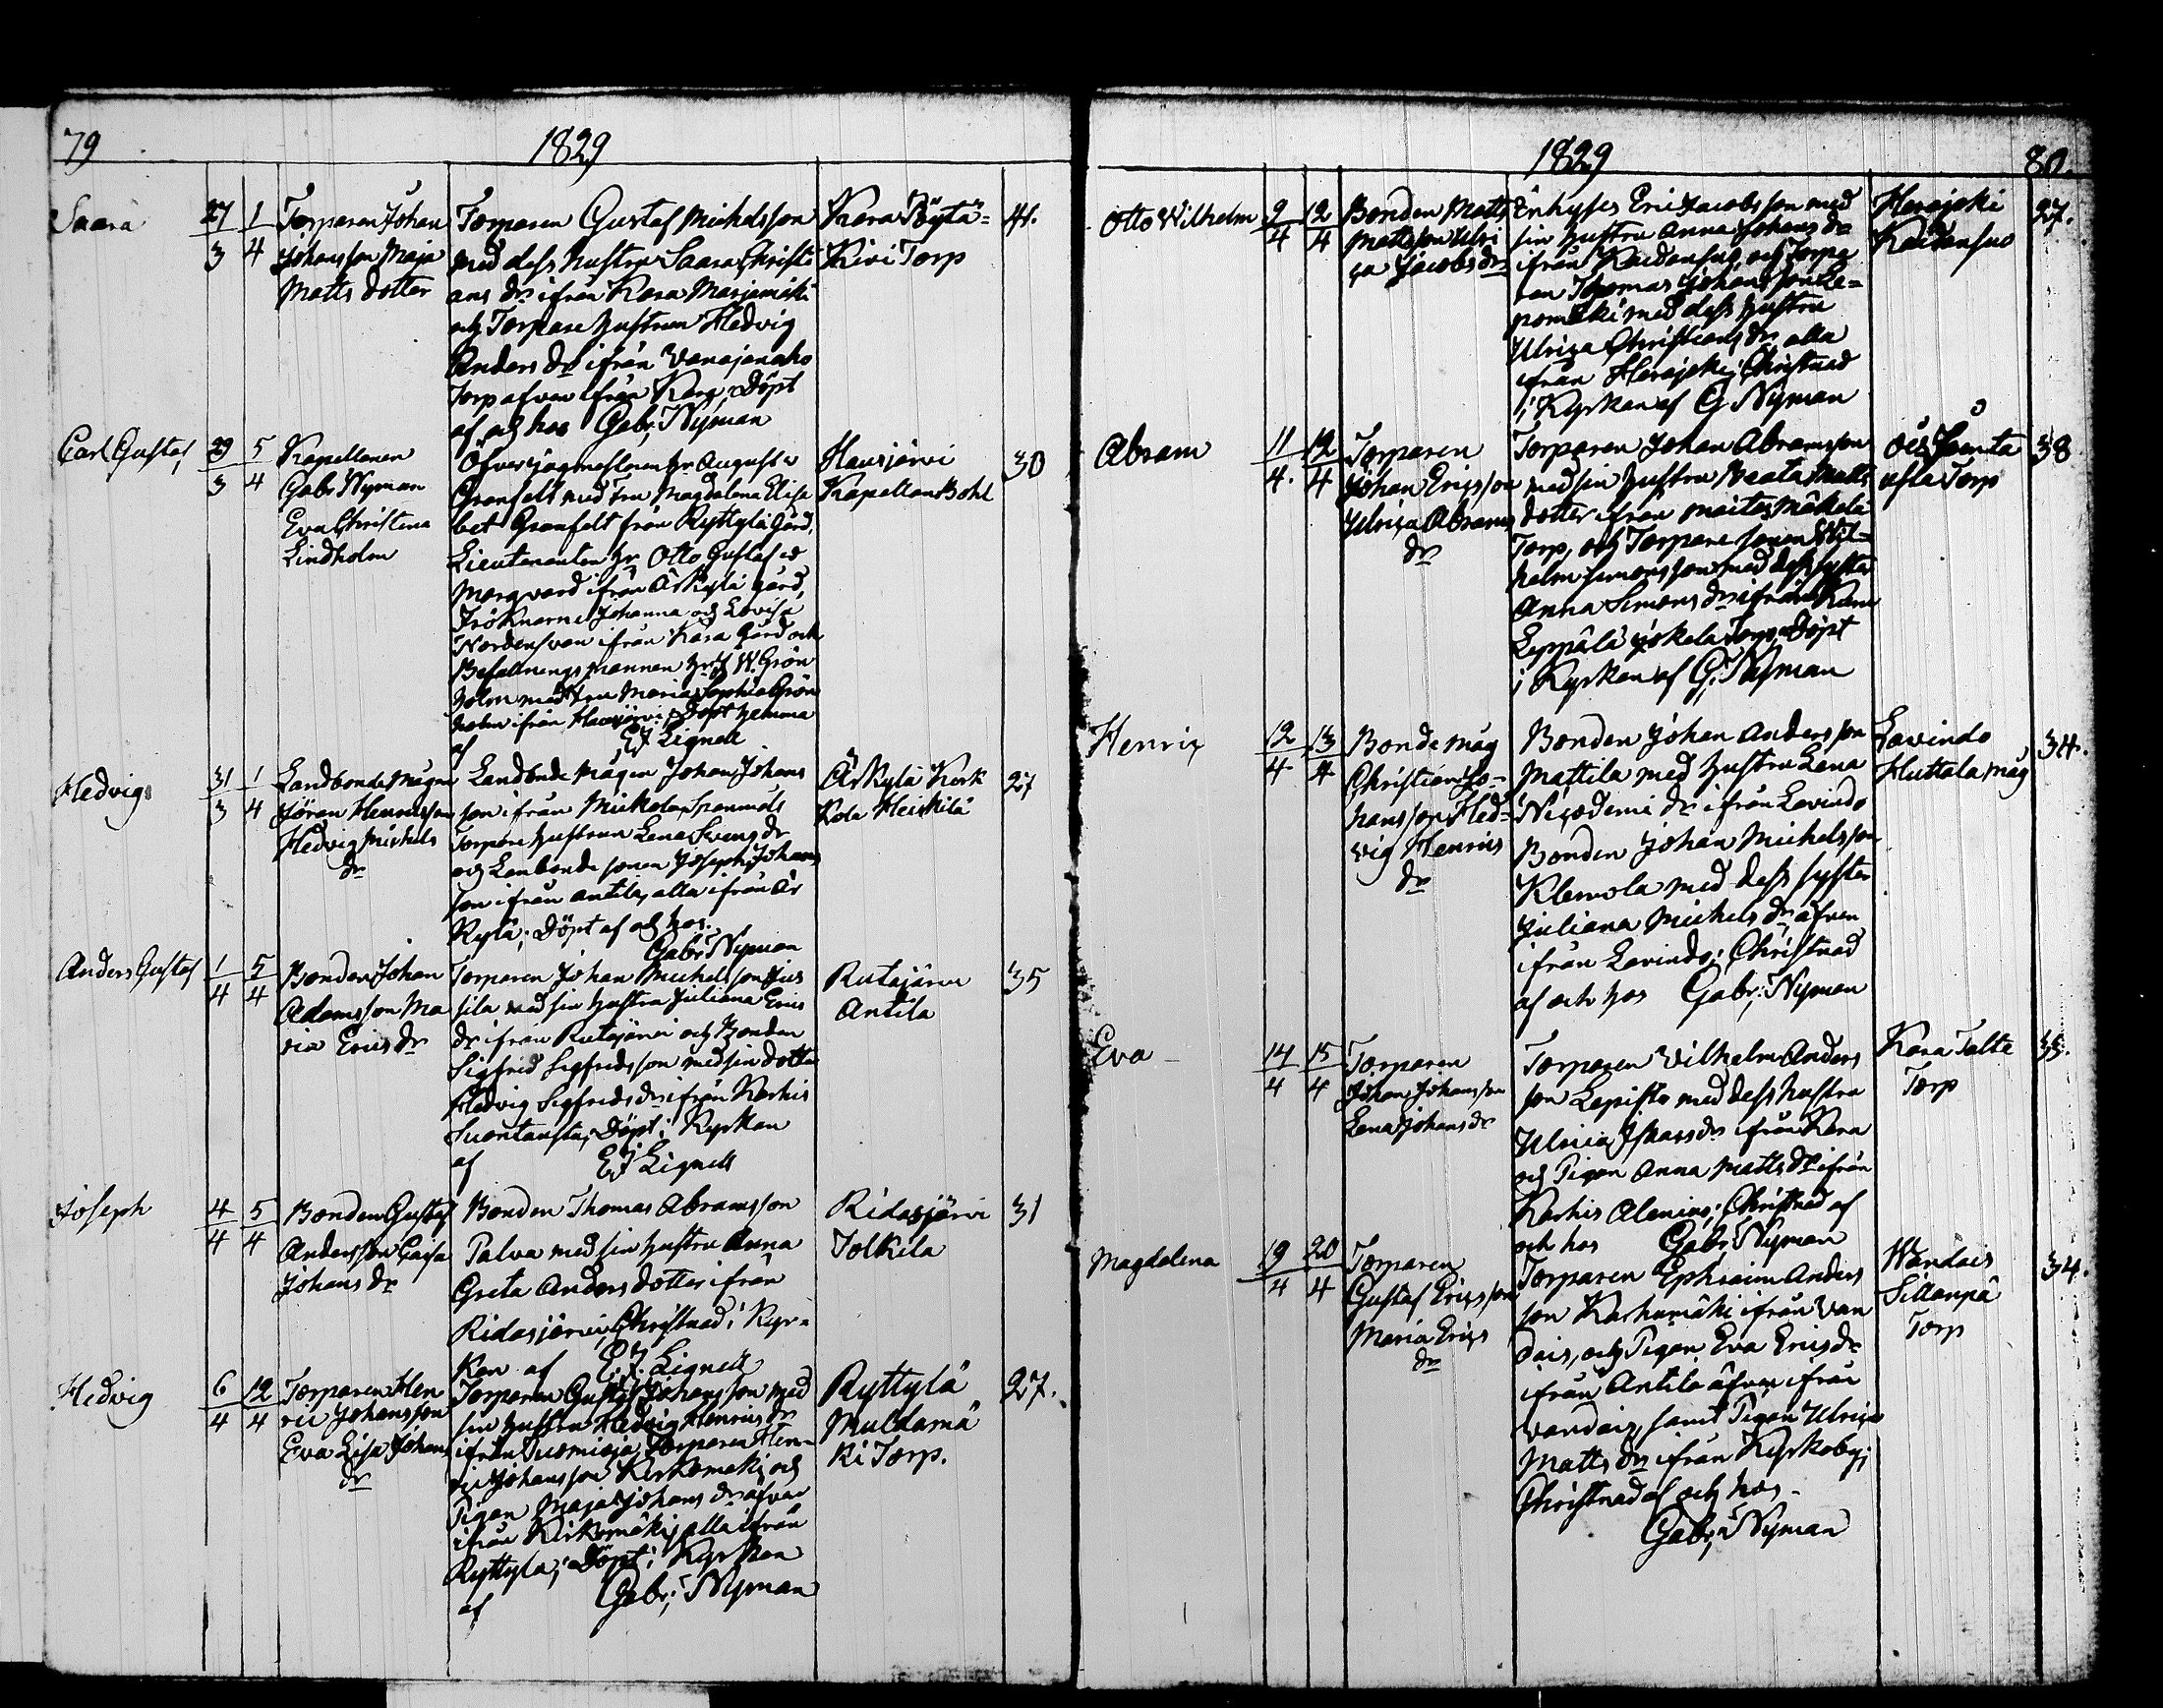 79
1829
Saara
27/3 1/4
Torparen Johan
Johansson Maja
Matts dotter
Torparen Gustaf Michelsson
med dess hustru Saara Christi
ans dr ifrån Kara Marjamäki
och Torpare hustrun Hedvig
Anders dr ifrån Vanajanaho
Torp afven ifrån Kara; Döpt
af och hos Gabr; Nyman
Kara Pöytä=
Kivi Torp
41.
Carl Gustaf
29/3 5/4
Kapellanen
Gabr Nyman
Eva Christina
Lindholm
Öfverjägmästaren hr August
Granfelt med Fru Magdalena Elisa
bet Granfelt från Ryttylä Gård,
Lieutenanten hr Otto Gustaf
Marqvard ifrån Ärkylä gård,
Fröknarne Johanna och Lovisa
Nordensvan ifrån Kara Gård och
Befallningsmannen hr J W. Grön
holm med Fru Maria Sophia Grön
holm ifrån Hausjärvi; Döpt hemma
af EJ Lignell
Hausjärvi
Kapellan Bohl
30
Hedvig
31/3 1/4
Landbonde Mågen
Jöran Henricsson
Hedvig Michels
dr
Landbonde Mågen Johan Johans
son ifrån Mickola,
Torpare hustrun Lena Svens dr
och Lanbonde sonen Joseph Johans
son ifrån Antila, alla ifrån Är
Kylä; Döpt af och hos.
Gabr Nyman
Ärkylä Kork
Kola Heickilä
27
Anders Gustaf
1/4 5/4
Bonden Johan
Adamsson Ma
ria Erics dr
Torparen Johan Michelsson Jus
sila med sin hustru Juliana Erics
dr ifrån Rutajärvi och Bonden
Sigfrid Sigfridsson med sin dotter
Hedvig Sigfrids dr ifrån Karhis
Suontausta; Döpt i Kyrkan
af EJ Lignell
Rutajärvi
Antila
35
Joseph
4/4 5/4
Bonden Gustaf
Andersson Caisa
Johans dr
Bonden Thomas Abramsson
Palva med sin hustru Anna
Greta Anders dotter ifrån
Ridasjärvi; Christnad i Kyr=
kan af EJ. Lignell
Ridasjärvi
Jolkila
31
Hedvig
6/4 12/4
Torparen Hen
ric Johansson
Eva Lisa Johans
dr
Torparen Gustaf Johansson med
sin hustru Hedvig Henrics dr
ifrån Tuomioja, Torparen Hen=
ric Johansson Kirkomäki och
Pigan Maja Johans dr afven
ifrån Kirkomäki, alla ifrån
Ryttylä; Döpt i Kyrkan
af Gabr; Nyman
Ryttylä
Multamä
Ki Torp.
27.
1829
80.
Otto Wilhelm
9/4 12/4
Bonden Matts
Mattsson Ulri
ca Jacobs dr
Enhyses Eric Jacobsson med
sin hustru Anna Johans dr
ifrån Kaidansuo, och Torpa
ren Thomas Johansson Le=
pomäki med dess hustru
Ulrica Christians dr alla
ifrån Herajoki; Christnad
i Kyrkan af G Nyman
Herajoki
Kaidansuo
27.
Abram
11/4. 12/4
Torparen
Johan Ericsson
Ulrica Abrams
dr
Torparen Johan Abramsson
med sin hustru Beata Matts
dotter ifrån Mäkelä
Torp, och Torpare sonen Wil=
helm Simonsson med dess syster
Anna Simons dr ifrån Kara
Leppälä Jokela Torp; Döpt
i Kyrkan af G; Nyman
Torp
38
Henric
12/4 13/4
Bonde Måg
Christian Jo=
hansson Hed=
vig Henrics
dr
Bonden Johan Andersson
Mattila med hustru Lena
Nicodemi dr ifrån Lavindo
Bonden Johan Michelsson
Klemola med dess syster
Juliana Michels dr äfven
ifrån Lavindo; Christnad
af och hos Gabr; Nyman
Lavindo
Huttala måg
34.
Eva
14/4 15/4
Torparen
Johan Johansson
Lena Johans dr
Torparen Vilhelm Anders
son Lepistö med dess hustru
Ulrica Ishacs dr ifrån Kara
och Pigan Anna Matts dr ifrån
Karhis Alenius; Christnad af
och hos Gabr; Nyman
Kara Talte
Torp
35.
Magdalena
19/4 20/4
Torparen
Gustaf Ericsson
Maria Erics
dr
Torparen Ephraim Anders
son Karhumäki ifrån Van
dais, och Pigan Eva Erics dr
ifrån Antila äfven ifrån
Vandais, samt Pigan Ulrica
Matts dr ifrån Kyrkoby;
Christnad af och hos.
Gabr; Nyman
Wandais
Sillanpä
Torp
34.